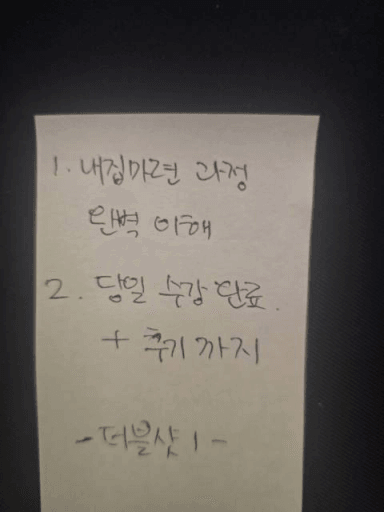 1. 내집마련 과정
완벽 이해
2. 당일 수강 완료.
+ 후기 까지
- 더블샷 1 -